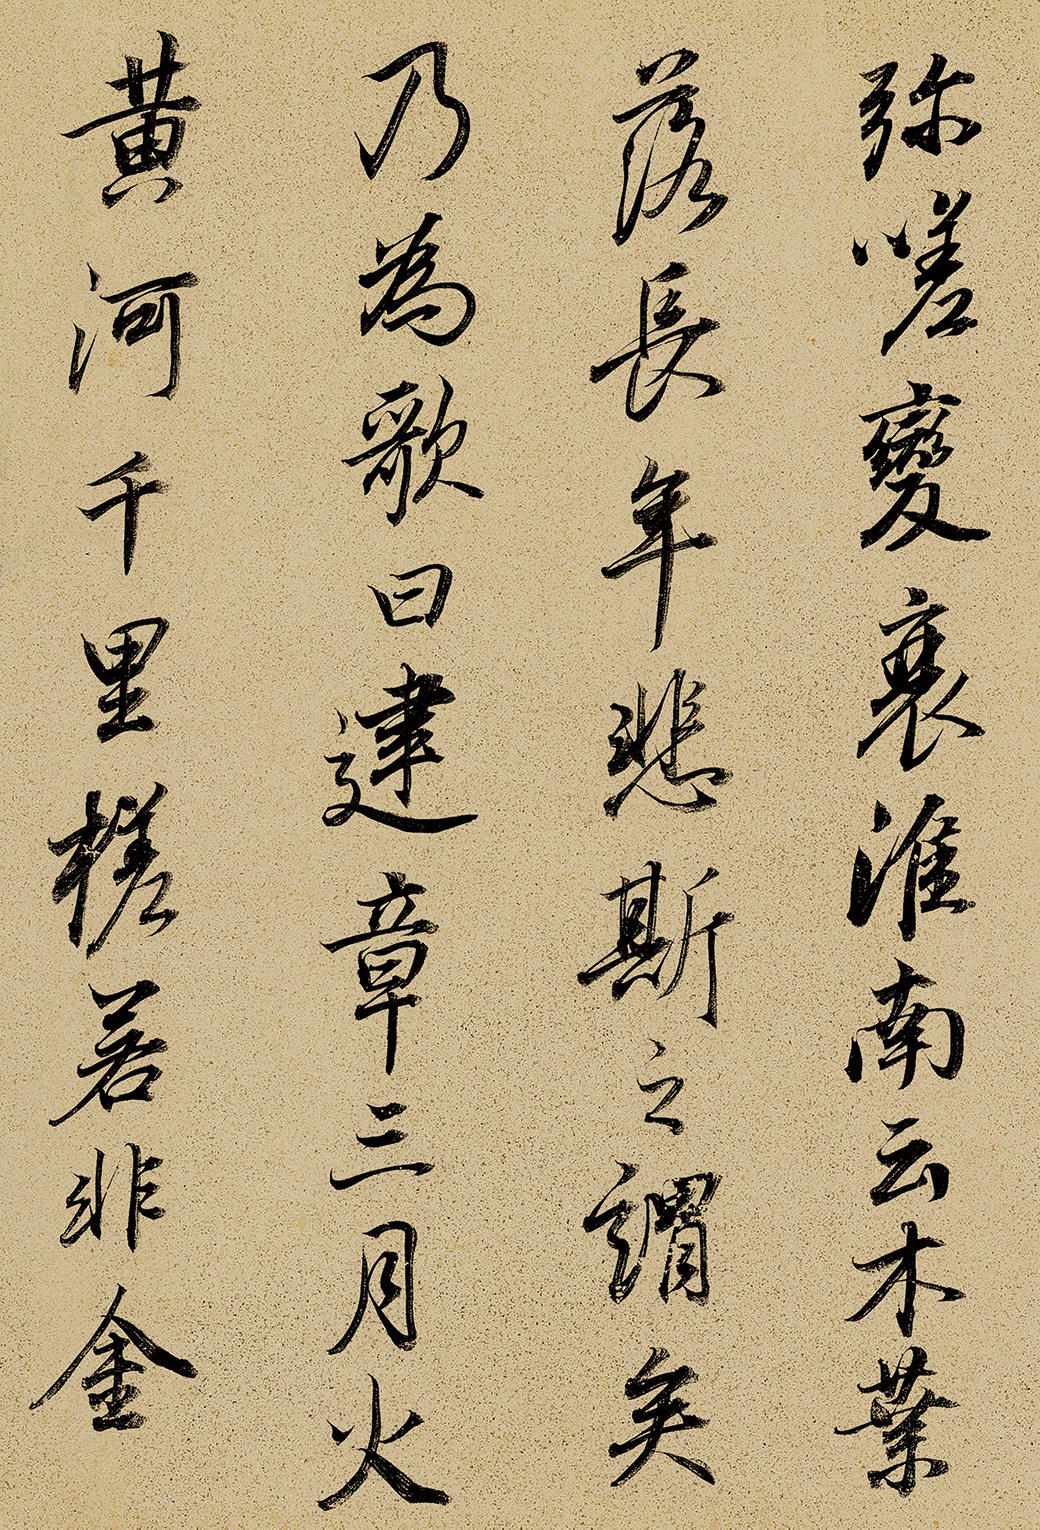 弥嗟變衰淮南云木葉
落長年悲斯之謂矣
乃為歌曰建章三月火
黄河千里槎若非金